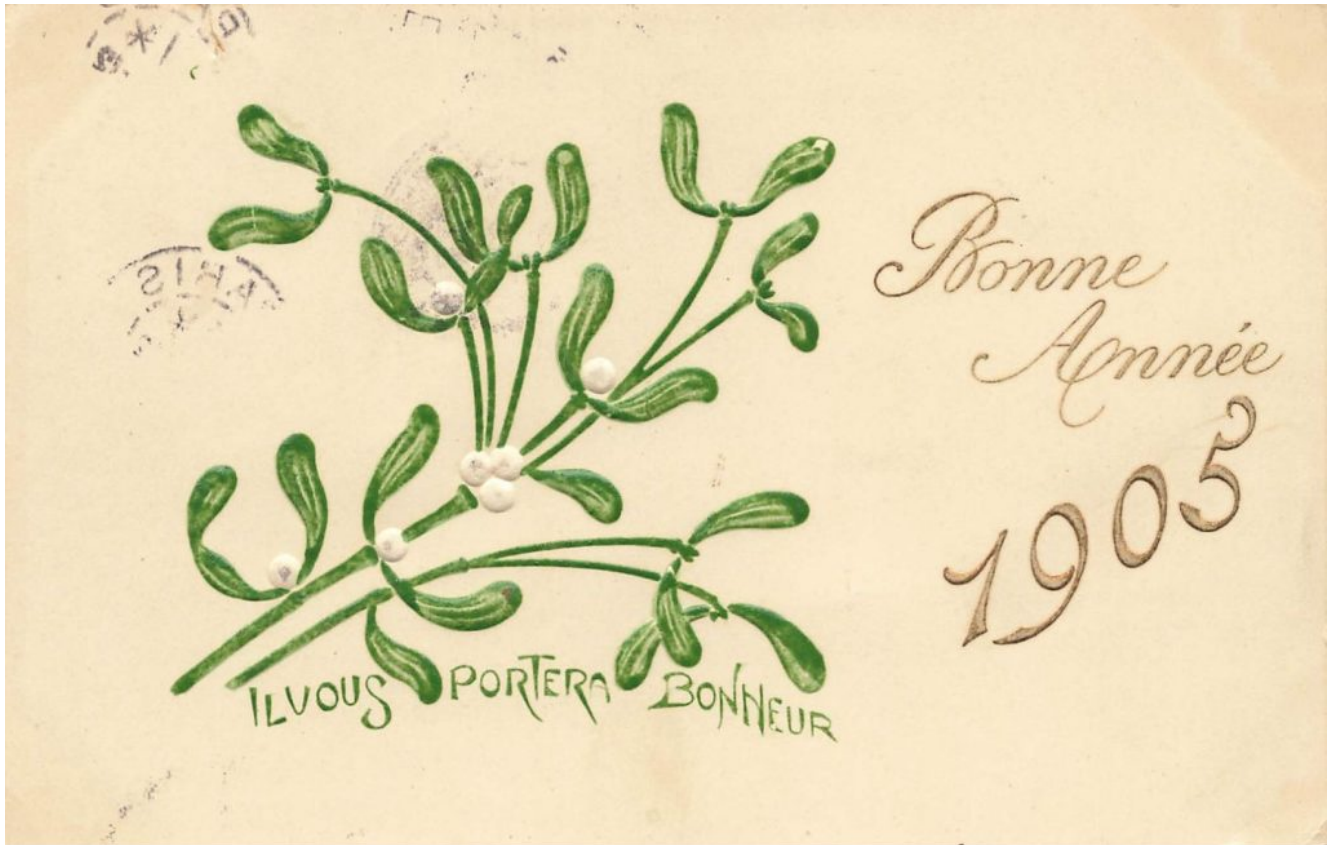 Bonne
Année
1905
IL VOUS PORTERA BONHEUR